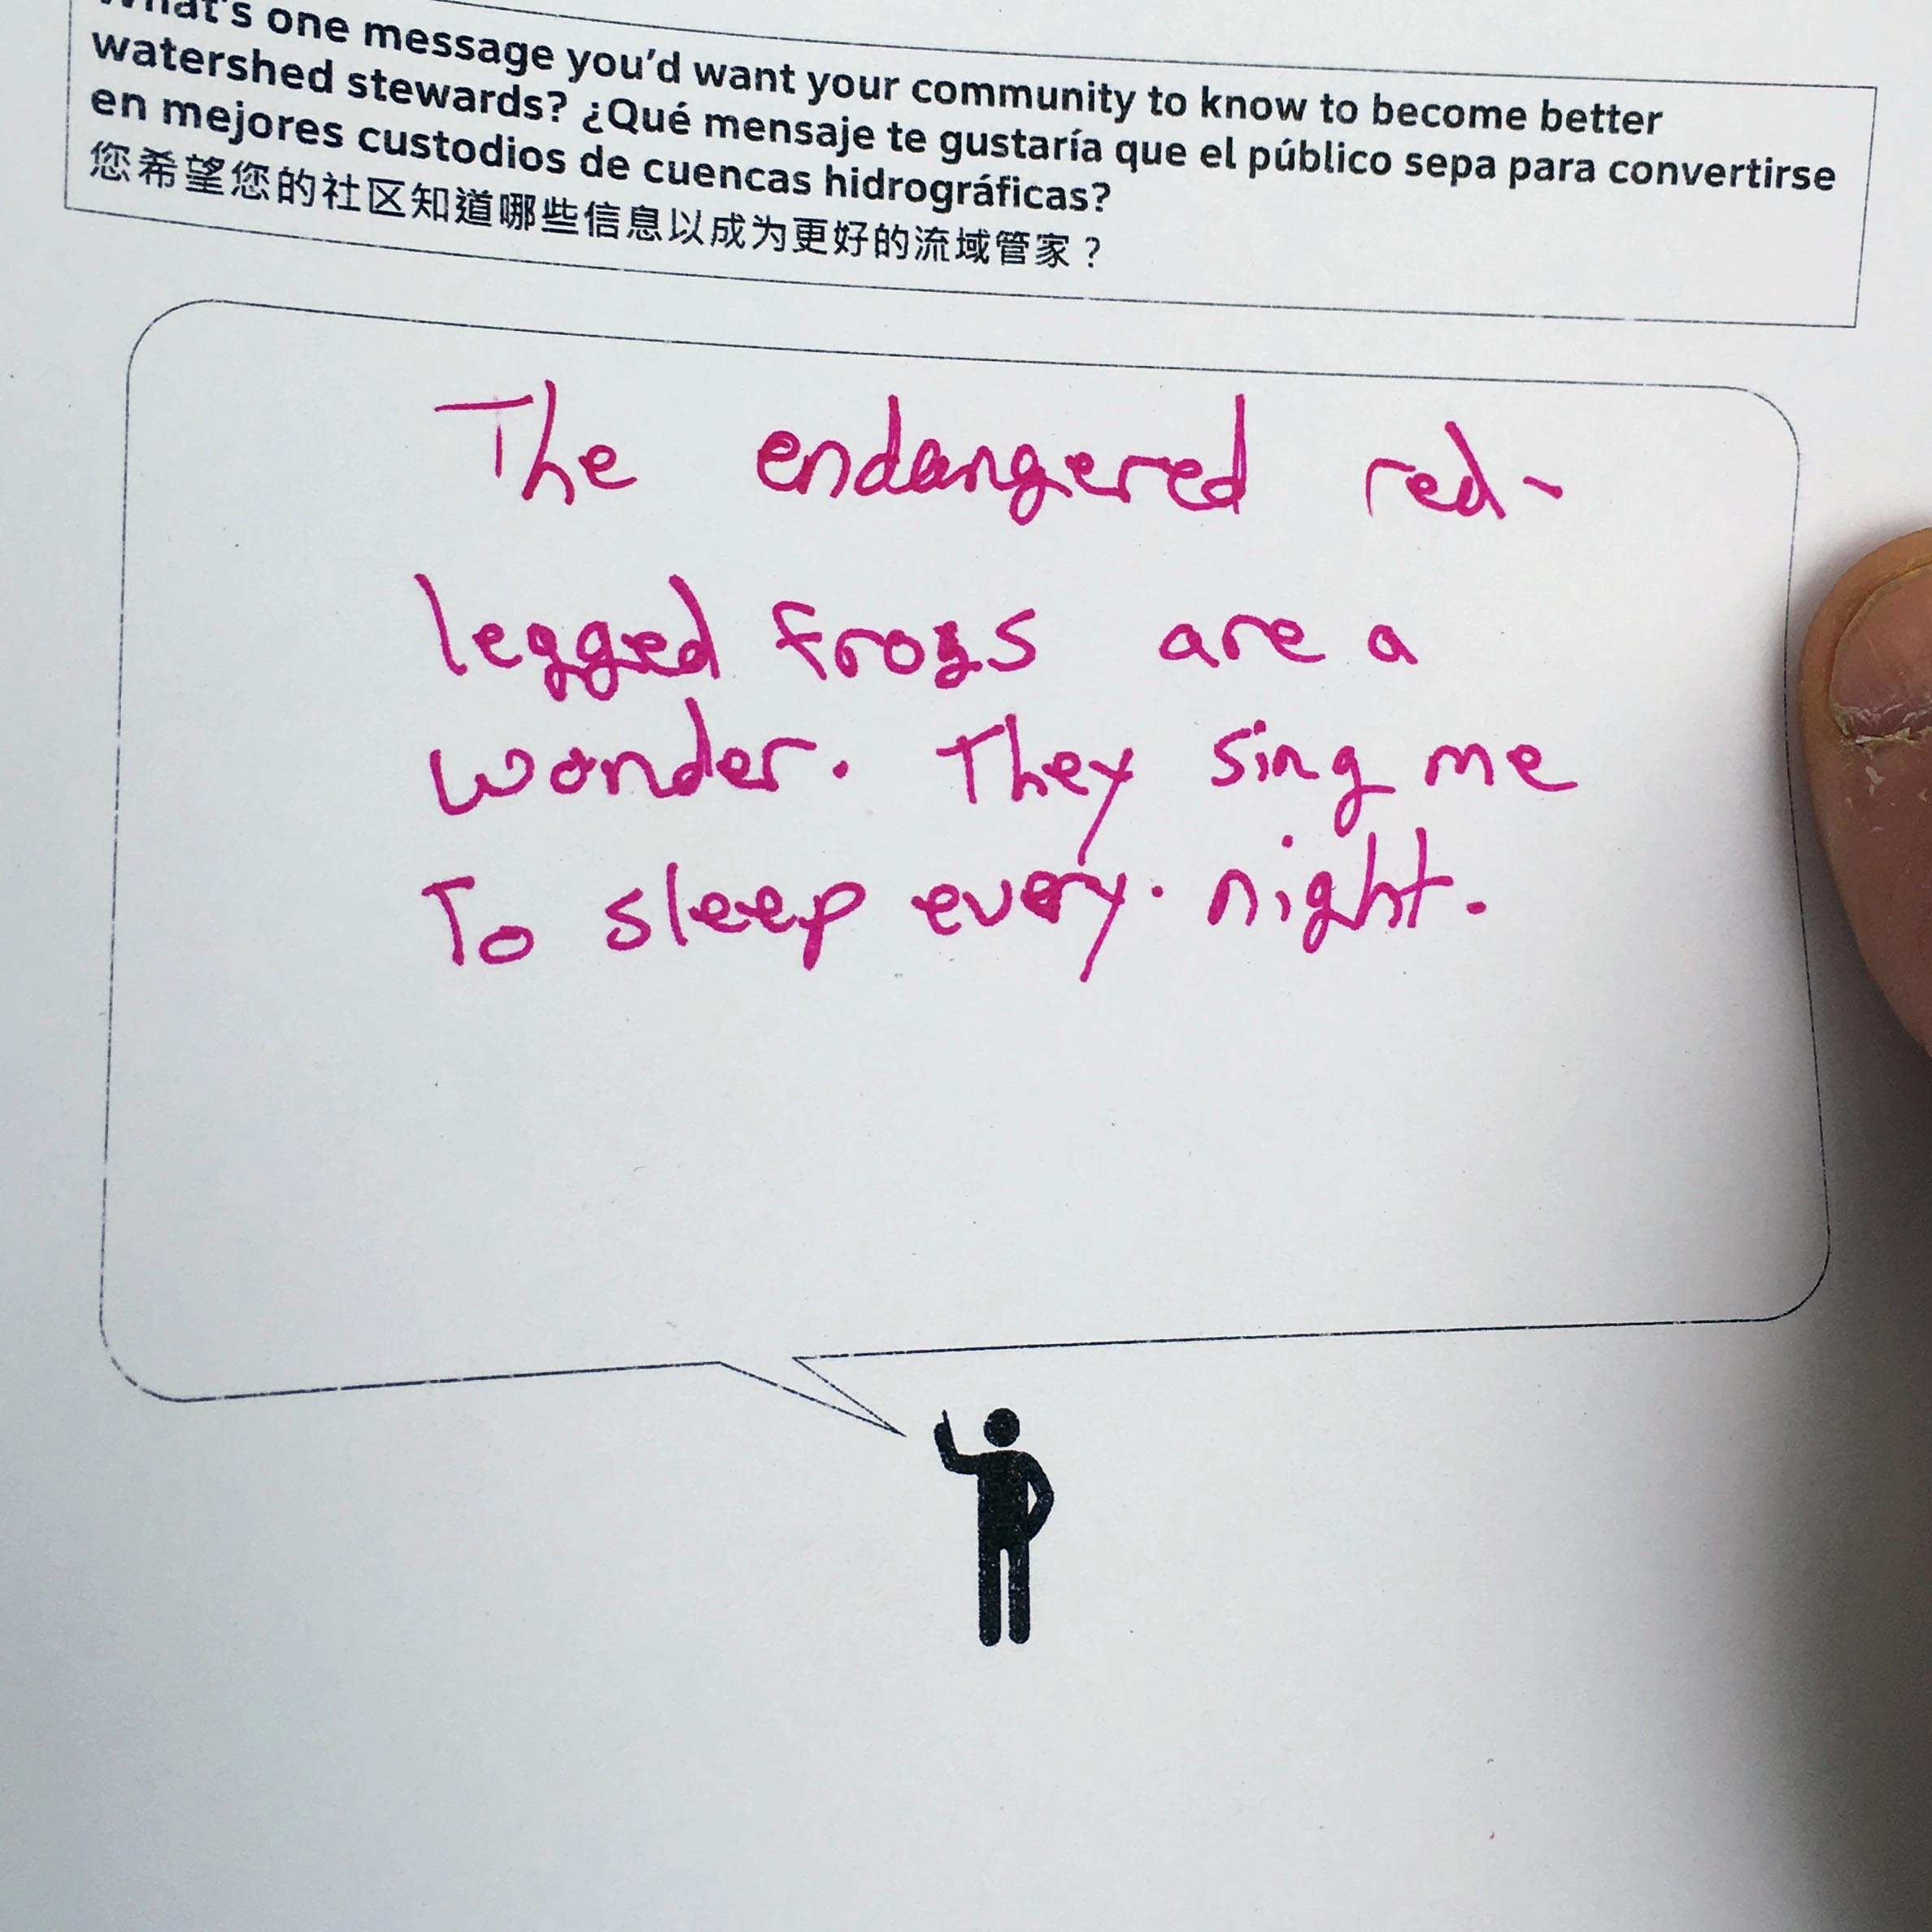 What's one message you'd want your community to know to become better
watershed stewards? ¿Qué mensaje te gustaría que el público sepa para convertirse
en mejores custodios de cuencas hidrográficas?
您希望您的社区知道哪些信息以成为更好的流域管家？
The endangered red-
legged frogs are a
wonder. They sing me
To sleep every. night.